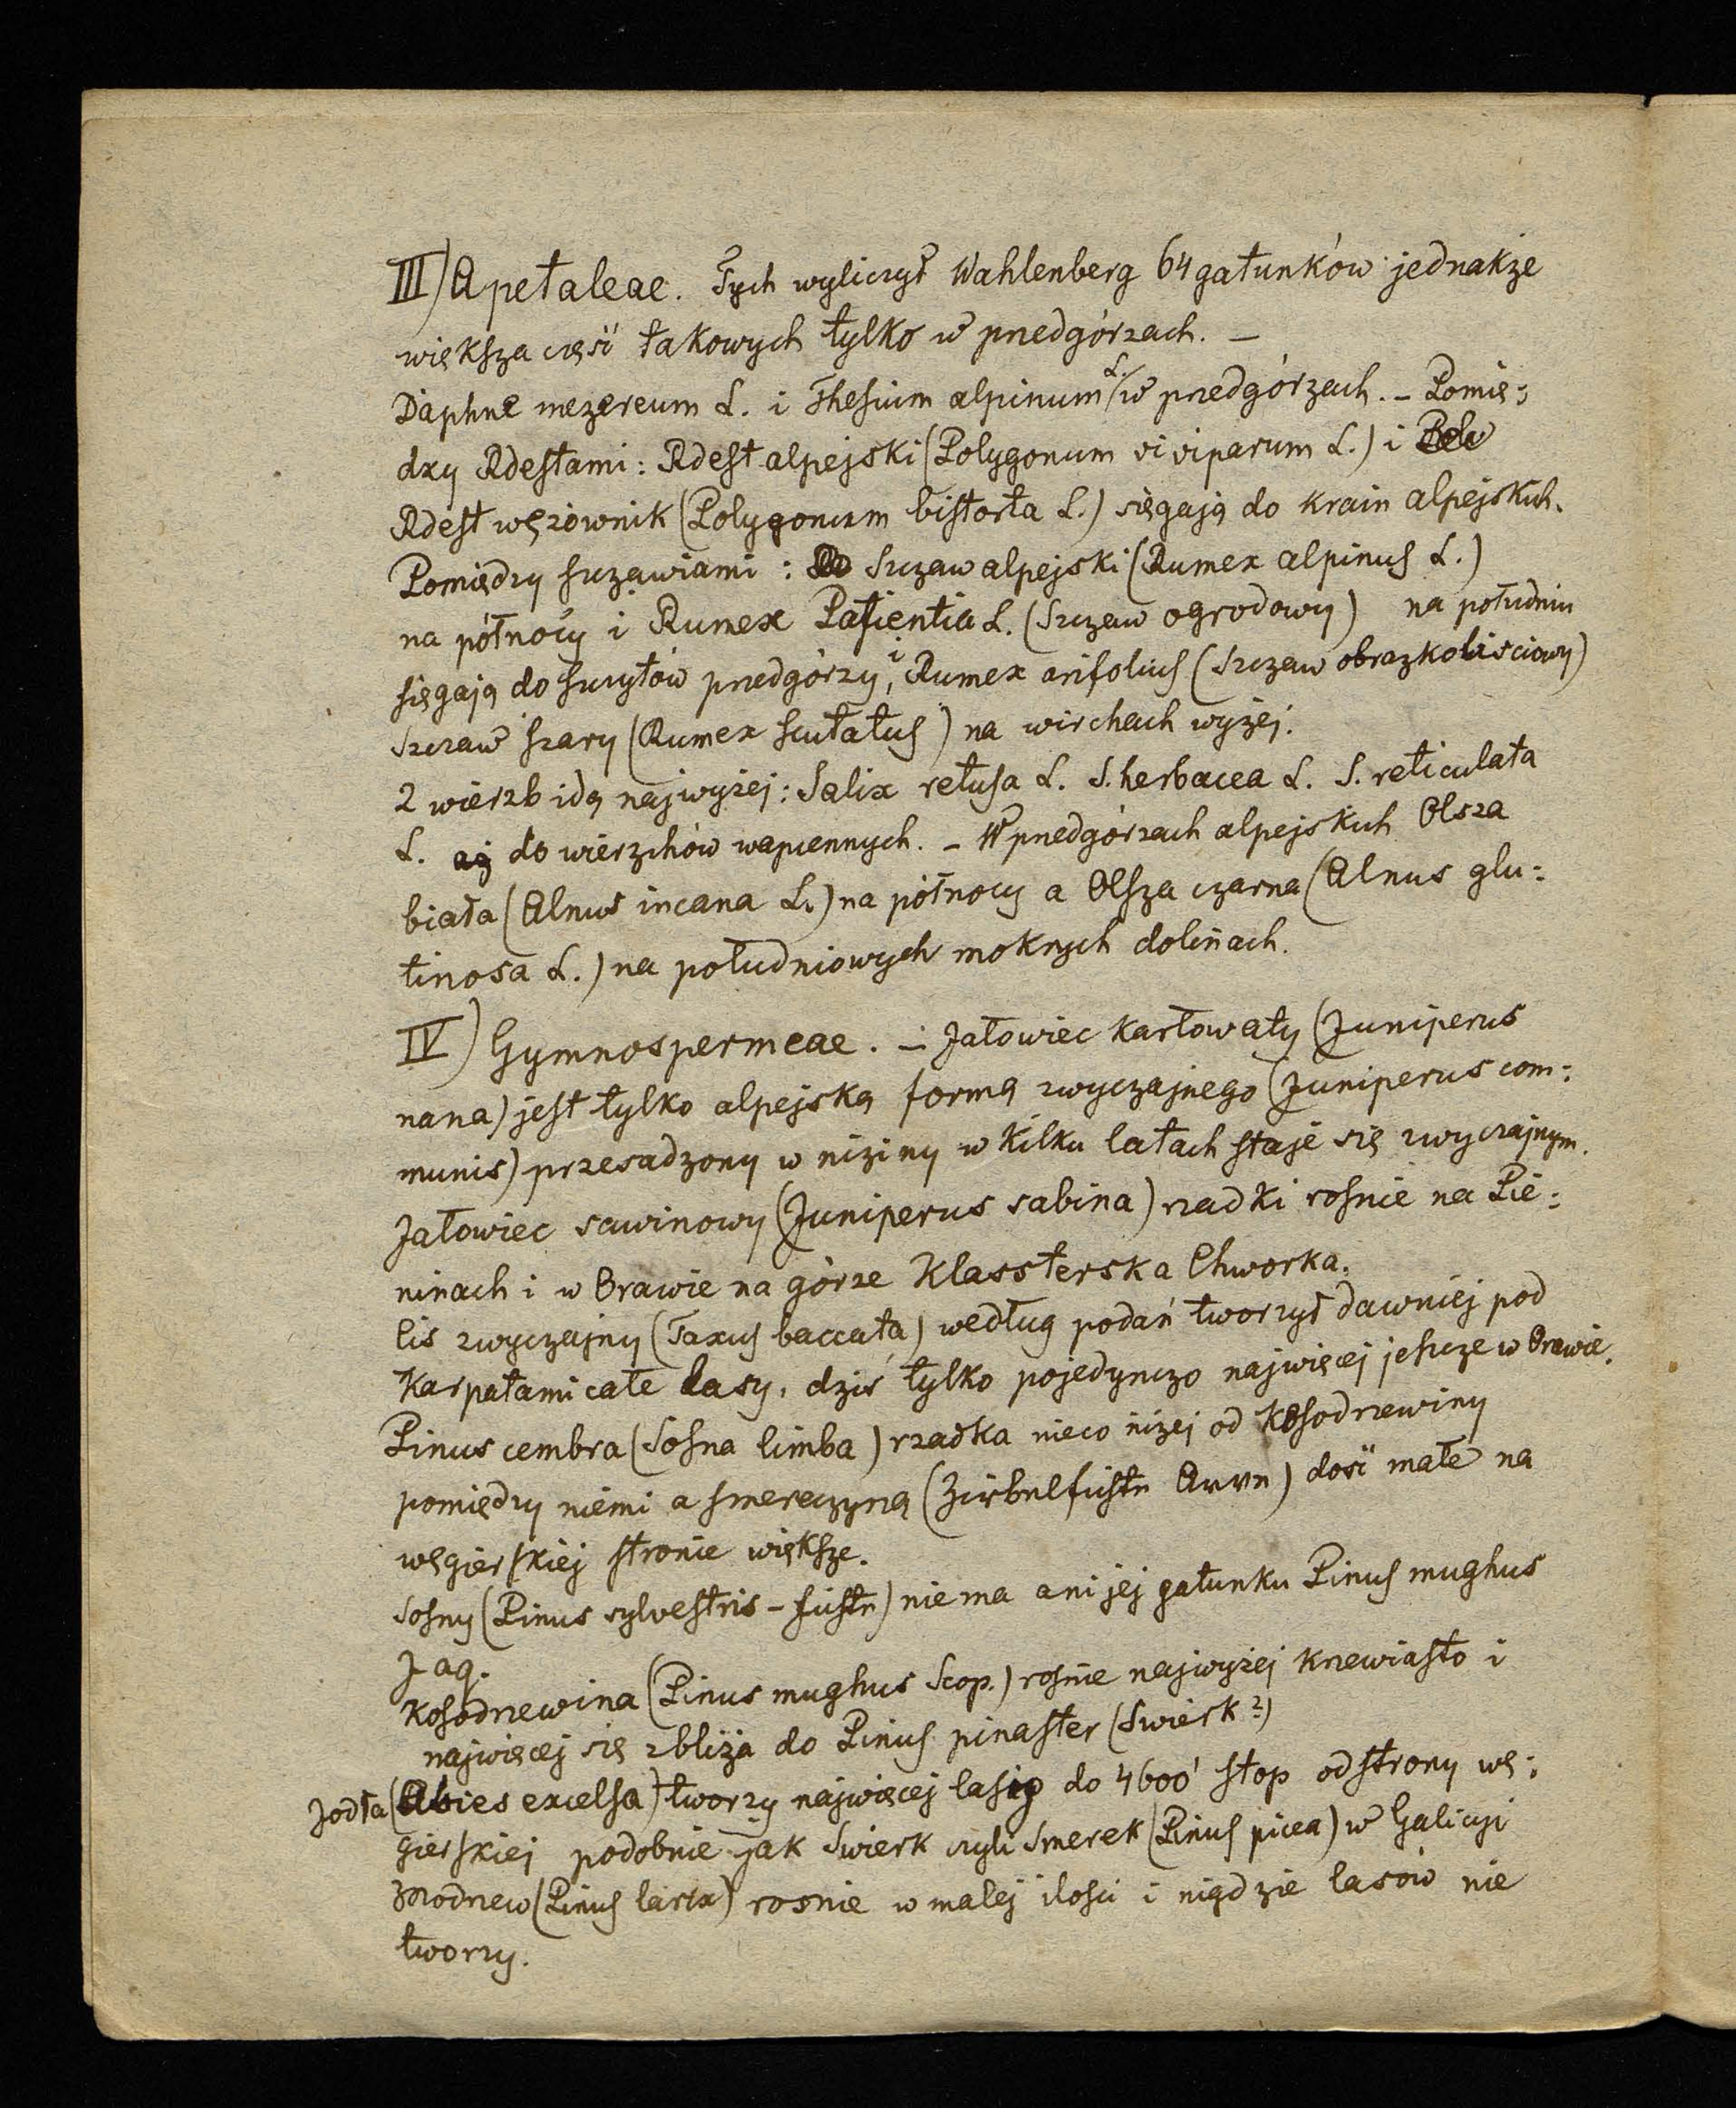 III) Apetaleae. Tych wyliczył Wahlenberg 64 gatunków jednakże
większa częśċ takowych tylko w przedgórzach. —
Daphne mezereum L. i Thesium alpinum L. w przedgórzach. – Pomię:
dzy Rdestami: Rdest alpejski (Polygonum viviparum L.) i
Rdest wężownik (Polygonum bistorta L.) sięgają do krain alpejskich.
Pomiędzy szczawiami: Szczaw alpejski (Rumex alpinus L.)
na północy i Rumex Patientia L. (Szczaw ogrodowy) na południu
sięgają do szczytów przedgórzy, i Rumex arifolius (Szczaw obrazkoliściowy)
Szczaw szary (Rumex scutatus) na wirchach wyżej.
2 wierzb idą najwyżej: Salix retusa L. S. herbacea L. S. reticulata
L. aż do wierzchów wapiennych. – W przedgórzach alpejskich Olsza
biała (Alnus incana L.) na północy a Olsza czarna (Alnus glu:
tinosa L.) na południowych mokrych dolinach.
IV) Gymnospermeae. – Jałowiec karłowaty (Juniperus
nana) jest tylko alpejską formą zwyczajnego (Juniperus com:
munis) przesadzony w niziny w kilku latach staje się zwyczajnym.
Jałowiec sawinowy (Juniperus sabina) rzadki rośnie na Pie:
ninach i w Orawie na górze Klassterska Chworka.
Cis zwyczajny (Taxus baccata) według podań tworzył dawniej pod
Karpatami całe lasy, dziś tylko pojedynczo najwięcej jeszcze w Orawie.
Pinus cembra (Sosna limba) rzadka nieco niżej od kosodrzewiny
pomiędzy niemi a smereczyną (Zirbelfichte Arve) dość małe na
węgierskiej stronie większe.
Sosny (Pinus sylvestris – Fichte) nie ma ani jej gatunku Pinus mughus
Jaq.
Kosodrzewina (Pinus mughus Scop.) rośnie najwyżej krzewiasto i
najwięcej się zbliża do Pinus pinaster (Swierk?)
Jodła (Abies excelsa) tworzy najwięcej lasy do 4600' stop od strony wę:
gierskiej podobnie jak Swierk czyli Smerek (Pinus picea) w Galicyi
Modrzew (Pinus larix) rosnie w małej ilości i nigdzie lasów nie
tworzy.